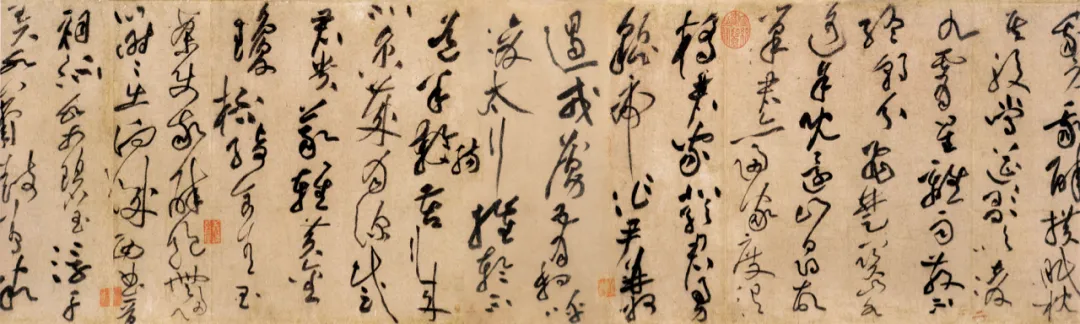 我醉橫眠枕
其股當筵意氣凌
九霄星離雨散不
終朝分飛楚關山水
遙余既還山尋故
巢君亦歸家度渭
橋君家嚴君勇
貔虎作尹并州
遏戎虜五月相呼
渡太行摧輪不
道羊腸苦行來
北京歲月深感
君貴義輕黃金
瓊杯綺食青玉
案使我醉飽無歸心
時時出向城西曲晉
祠流水如碧玉浮舟
弄水簫鼓鳴微